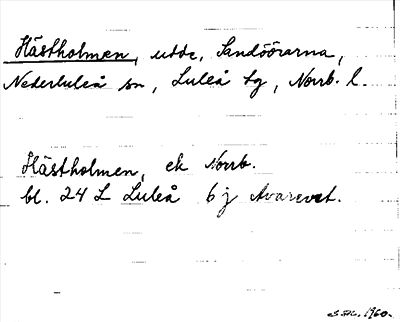 Hästholmen, udde, Sandöörarna,
Nederluleå sn, Luleå tg, Norrb. l.
Hästholmen, ek Norrb.
bl. 24 L Luleå 6 j Avarevet.
1960.